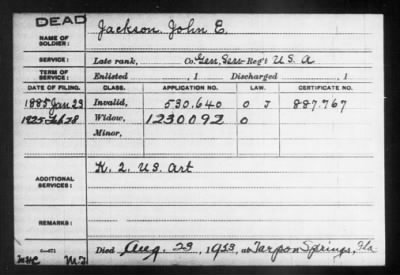 DEAD
NAME OF SOLDIER: Jackson, John E.
SERVICE: Late rank, Co. Gen. Serv. Reg't U.S.A
TERM OF SERVICE: Enlisted , 1 Discharged , 1
DATE OF FILING. CLASS. APPLICATION NO. LAW. CERTIFICATE NO.
1885 Jan 23 Invalid, 530.640 O J 887.767
1925 Feb 28 Widow, 1230092 O
Minor,
ADDITIONAL SERVICES: K. 2. U.S. Art
REMARKS:
Died Aug. 23, 19 at Tarpon Springs, Fla